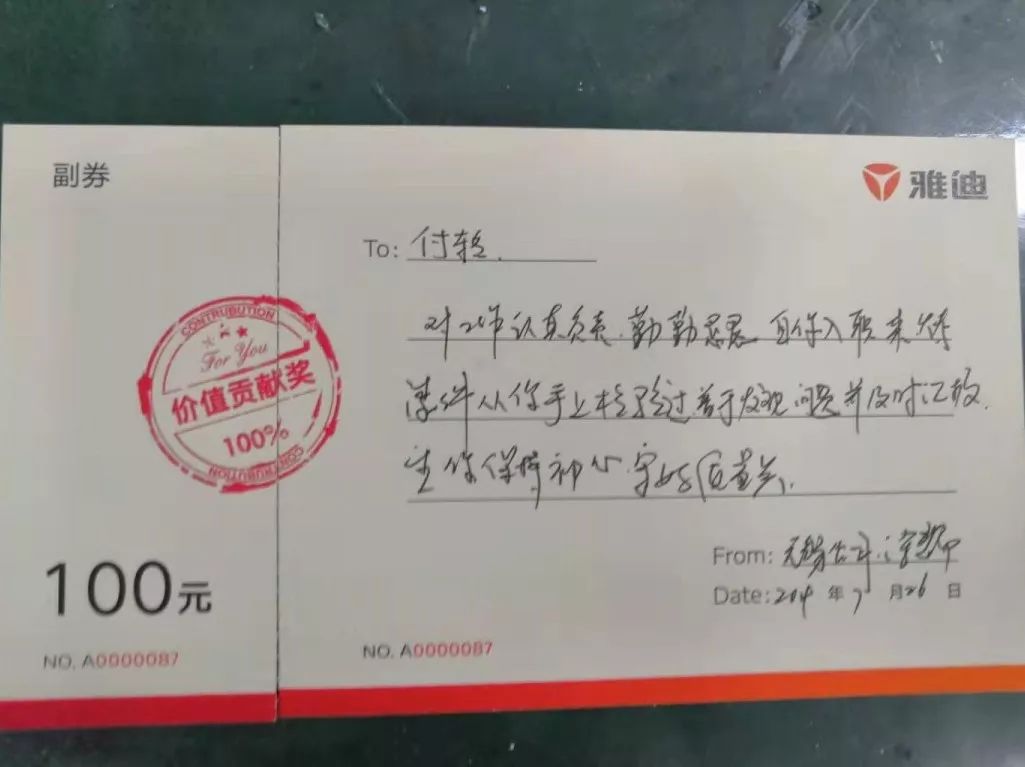 副券
CONTRUBUTION
For You
价值贡献奖
100%
CONTRUBUTION
100元
NO. A0000087
雅迪
To: 付
对工作认真负责.勤勤恳恳 自你入职来
件从你手上检验过善于发现问题并及时汇报.
你保持初心.守好质量关.
From: 无锡公司:
Date: 年7月26日
NO. A0000087